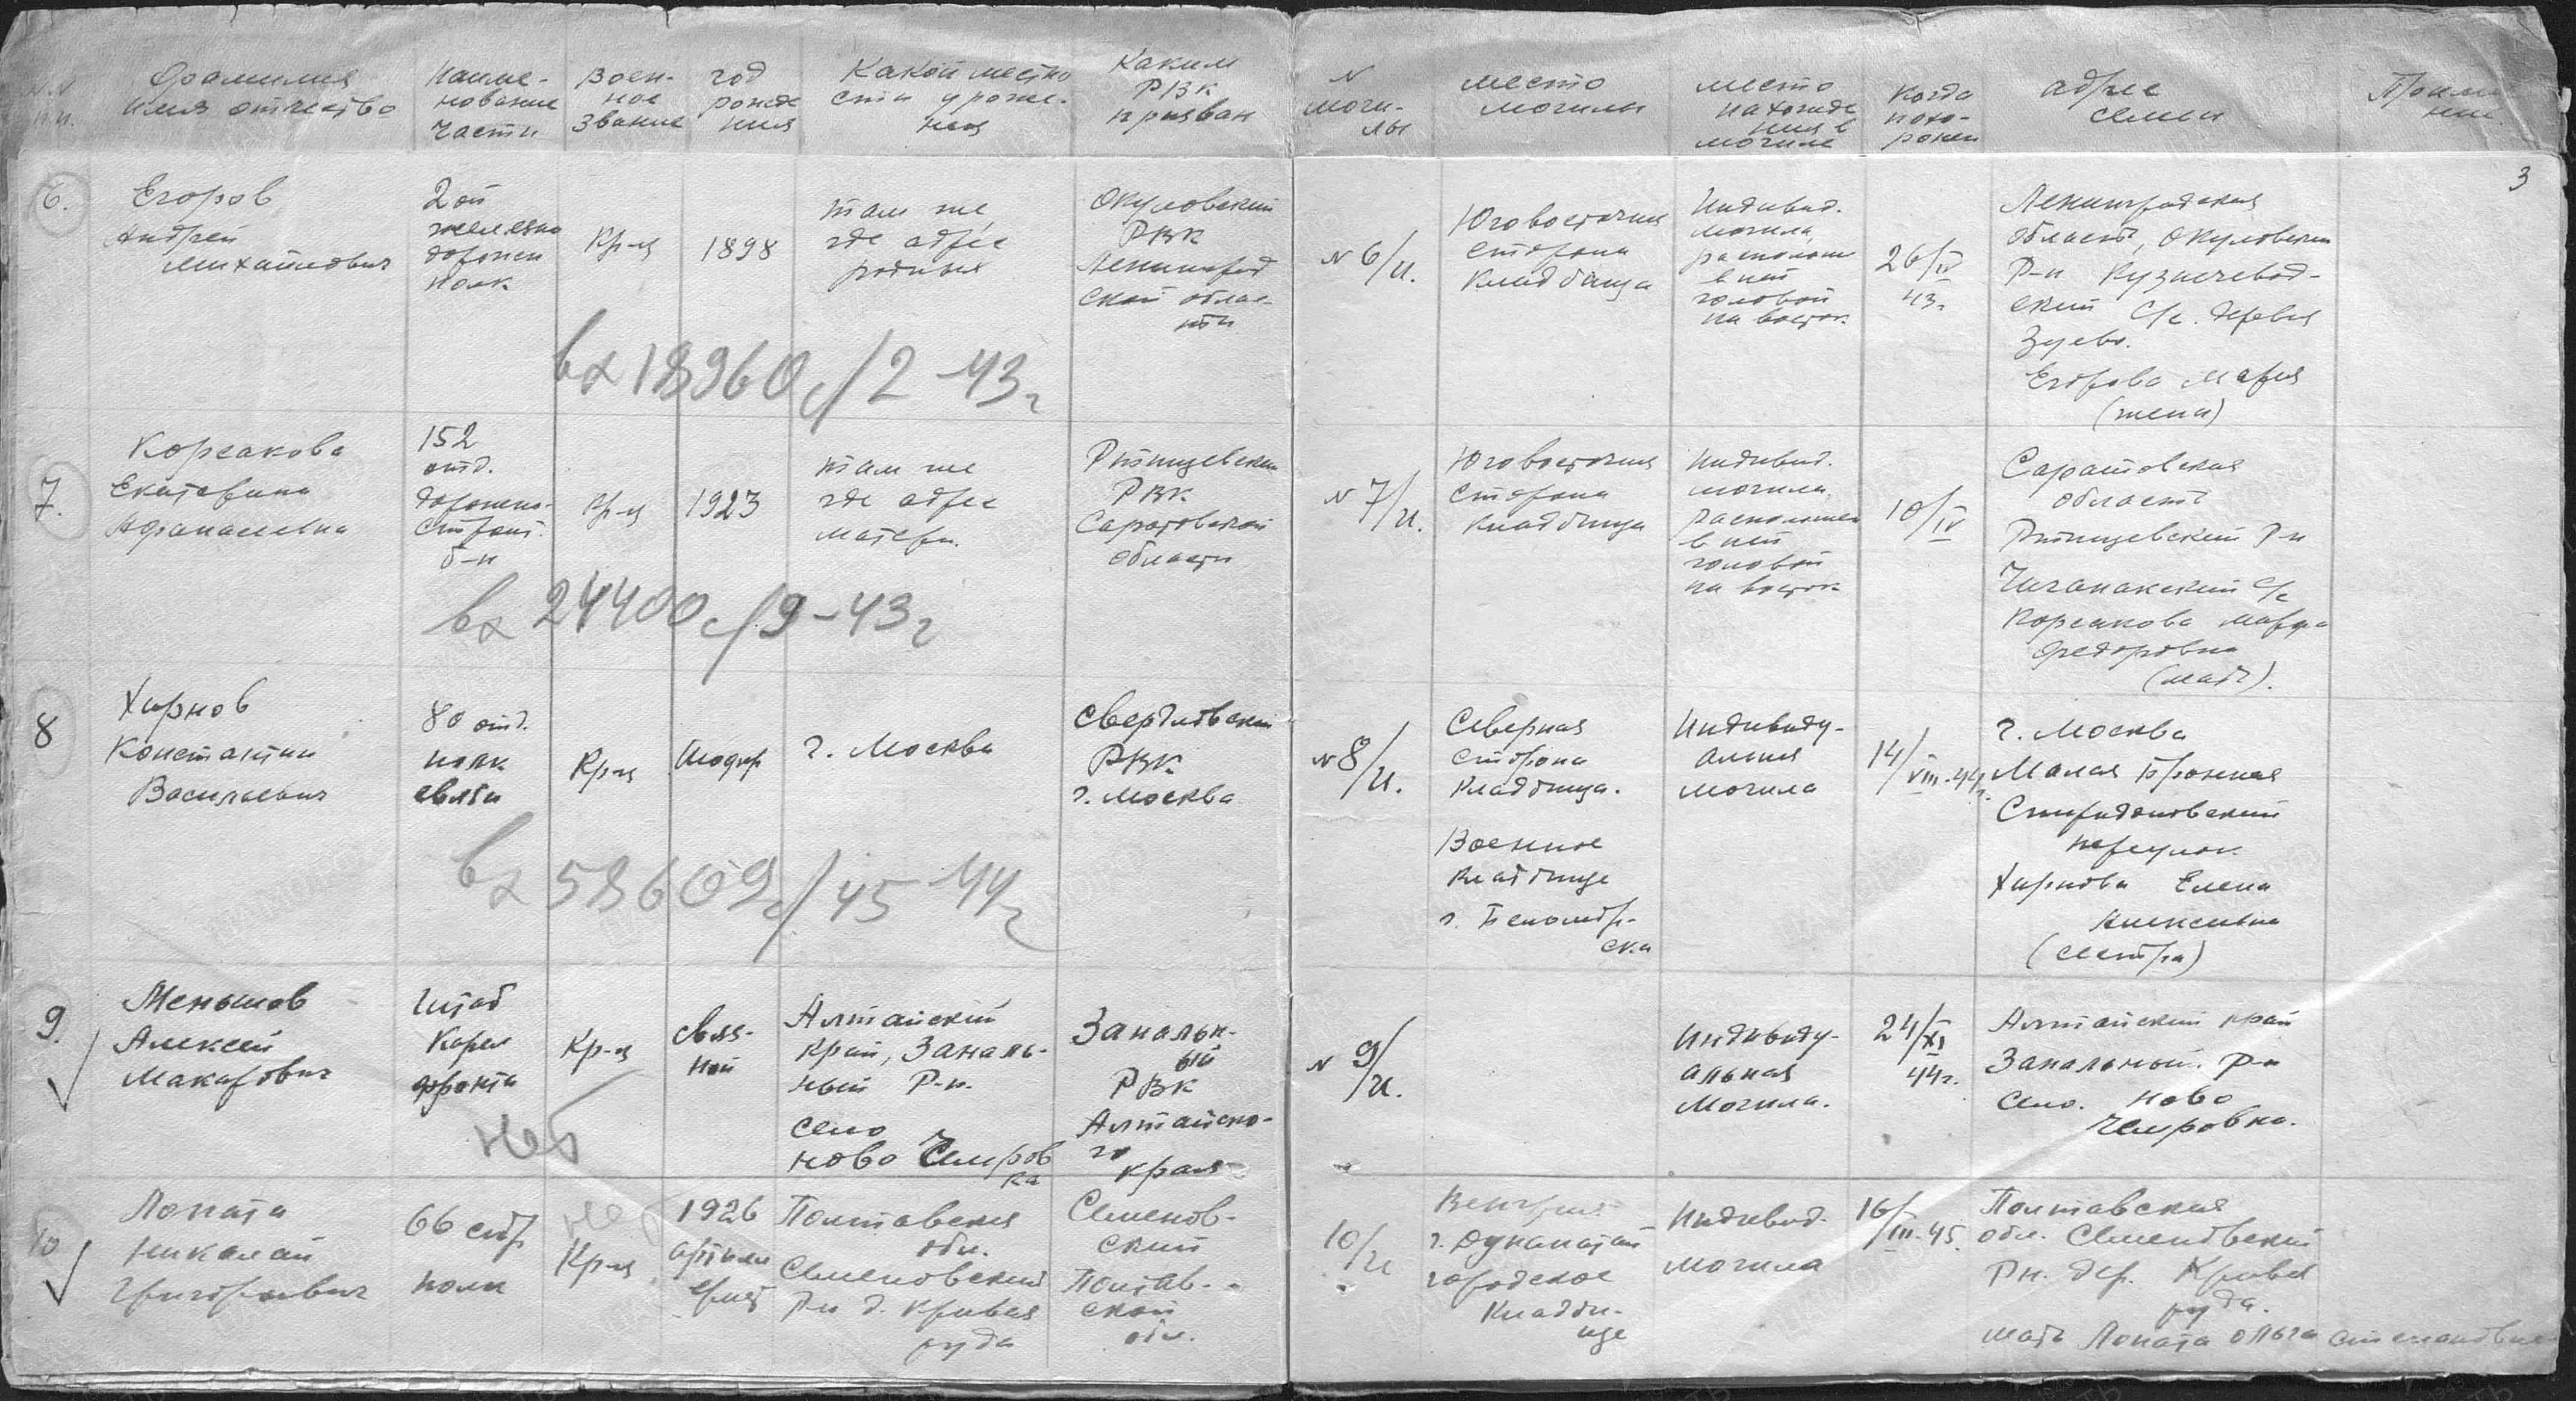 Фамилия
имя отчество
Наиме-
нование
части
Воен-
ное
звание
год
рожде
ния
Какой местно
сти уроже-
нец
Каким
РВК
призван
N
моги-
лы
место
могилы
место
нахожде
ния в
могиле
когда
похо-
ронен
адрес
семьи
3
6.
Егоров
Андрей
Михайлович
2ой
железно
дорожн
полк
Кр-ц
1898
там же,
где адрес
родных
Окуловский
РВК
Ленинград
ской облас-
ти
N 6/И.
Юговосточная
сторона
кладбища
Индивид.
могила,
располож
в ней
головой
на восток
26/IV
43г
Ленинградская
область, Окуловский
Р-н
с/с. деревня
Зуево.
Егорова Мария
(жена)
вх 18960с/2-43г
7.
Корсакова
Екатерина
Афанасьевна
152
отд.
дорожно-
строит.
б-н
Кр-ц
1923
там же
где адрес
матери.
Ртищевский
РВК
Саратовской
области
N 7/И.
Юговосточная
сторона
кладбища
Индивид.
могила,
расположен
в ней
головой
на восток
10/IV
Саратовская
область
Ртищевский Р-н
с/с
Корсакова Марфа
Федоровна
(мать).
вх 24400с/9-43г
8
Хирнов
Константин
Васильевич
80 отд.
полк
связи
Кр-ц
Шофер
г. Москва
Свердловский
РВК
г. Москва
N 8/И.
Северная
сторона
кладбища.
Военное
кладбище
г. Беломор-
ска
Индивиду-
альная
могила
14/VIII-44г.
г. Москва
Малая Бронная
Спиридоновский
переулок
Хирнова Елена
(сестра)
вх 58609с/45 44г
9.
Меньшов
Алексей
Макарович
Штаб
Карел
фронта
Кр-ц
связ-
ной
Алтайский
край, Заналь-
ный Р-н.
село
Ново Чемров
ка
Занальн-
ый
РВК
Алтайско-
го
края
N 9/И.
Индивиду-
альная
могила.
24/XI
44г.
Алтайский край
Занальный. р-н
село. Ново
Чемровка.
Нет
10
Лопата
Николай
Григорьевич
66 стр
полк
Нет
Кр-ц
1926
артилл
ерист
Полтавская
обл.
Семеновский
Р-н д. Кривая
руда
Семенов-
ский
Полтав-
ской
обл.
10/И
Венгрия
г. Дунапатай
городское
кладби-
ще
Индивид.
могила
16/III-45.
Полтавская
обл. Семеновский
Рн. дер. Кривая
руда.
мать Лопата Ольга